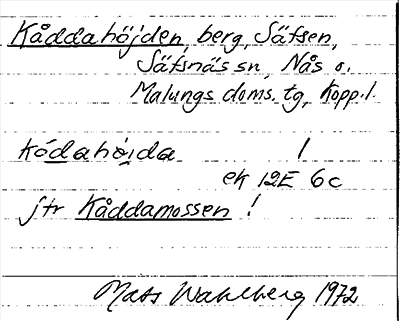 Kåddahöjden, berg, Säfsen,
Säfsnäs sn, Nås o.
Malungs doms. tg, Kopp. l.
kódahö̀ida !
ek 12E 6c
jfr Kåddamossen !
Mats Wahlberg 1972